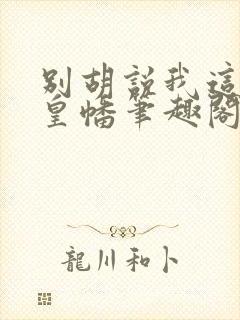 別胡說我這
皇幡筆趣閣
龍川和卜